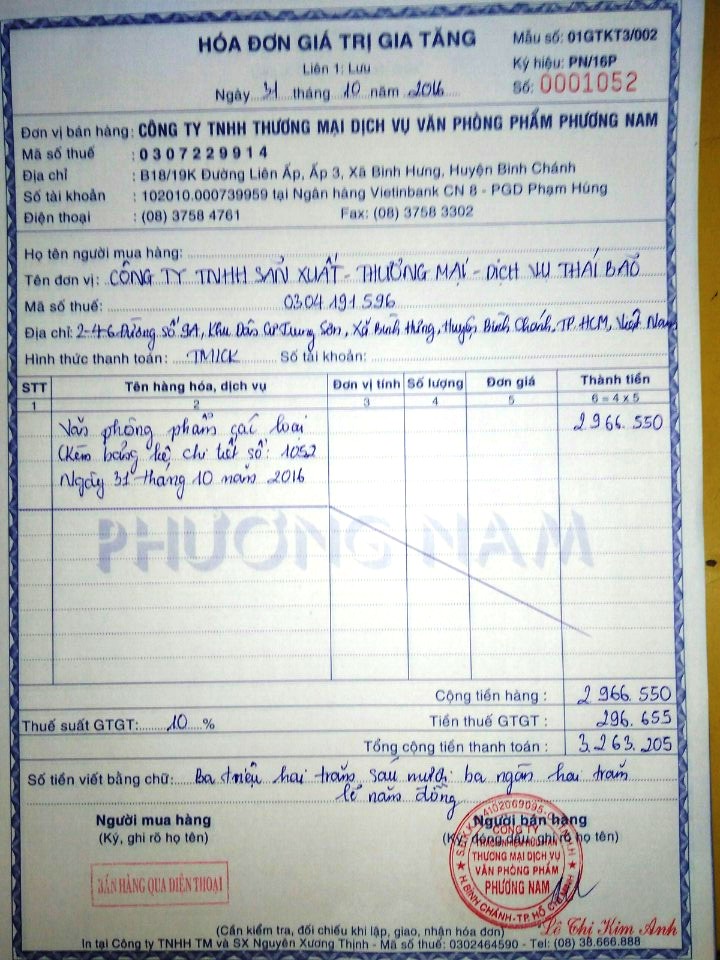 HÓA ĐƠN GIÁ TRỊ GIA TĂNG
Mẫu số: 01GTKT3/002
Liên 1: Lưu
Ký hiệu: PN/16P
Ngày 31 tháng 10 năm 2016
Số: 0001052
Đơn vị bán hàng: CÔNG TY TNHH THƯƠNG MẠI DỊCH VỤ VĂN PHÒNG PHẨM PHƯƠNG NAM
Mã số thuế : 0307229914
Địa chỉ : B18/19K Đường Liên Ấp, Ấp 3, Xã Bình Hưng, Huyện Bình Chánh
Số tài khoản : 102010.000739959 tại Ngân hàng Vietinbank CN 8 - PGD Phạm Hùng
Điện thoại : (08) 3758 4761 Fax: (08) 3758 3302
Họ tên người mua hàng:
Tên đơn vị: CÔNG TY TNHH SẢN XUẤT - THƯƠNG MẠI - DỊCH VỤ THÁI BẢO
Mã số thuế: 0304191596
Địa chỉ: 2-4-6 Đường số 9A, Khu Dân Cư Trung Sơn, Xã Bình Hưng, Huyện Bình Chánh, TP.HCM, Việt Nam
Hình thức thanh toán: TM/CK Số tài khoản:
STT Tên hàng hóa, dịch vụ Đơn vị tính Số lượng Đơn giá Thành tiền
1 2 3 4 5 6 = 4 x 5
Văn phòng phẩm các loại 2 966.550
(Kèm bảng kê chi tiết số: 1052
Ngày 31 tháng 10 năm 2016
PHƯƠNG NAM
Cộng tiền hàng : 2 966.550
Thuế suất GTGT: 10 % Tiền thuế GTGT : 296.655
Tổng cộng tiền thanh toán : 3.263.205
Số tiền viết bằng chữ: Ba triệu hai trăm sáu mươi ba ngàn hai trăm
lẻ năm đồng
Người mua hàng Người bán hàng
(Ký, ghi rõ họ tên) (Ký, đóng dấu, ghi rõ họ tên)
BÁN HÀNG QUA ĐIỆN THOẠI
CÔNG TY
TRÁCH NHIỆM HỮU HẠN
THƯƠNG MẠI DỊCH VỤ
VĂN PHÒNG PHẨM
PHƯƠNG NAM
H. BÌNH CHÁNH - TP. HỒ CHÍ MINH
Lê Thị Kim Anh
(Cần kiểm tra, đối chiếu khi lập, giao, nhận hóa đơn)
In tại Công ty TNHH TM và SX Nguyên Xương Thịnh - Mã số thuế: 0302464590 - Tel: (08) 38.666.888